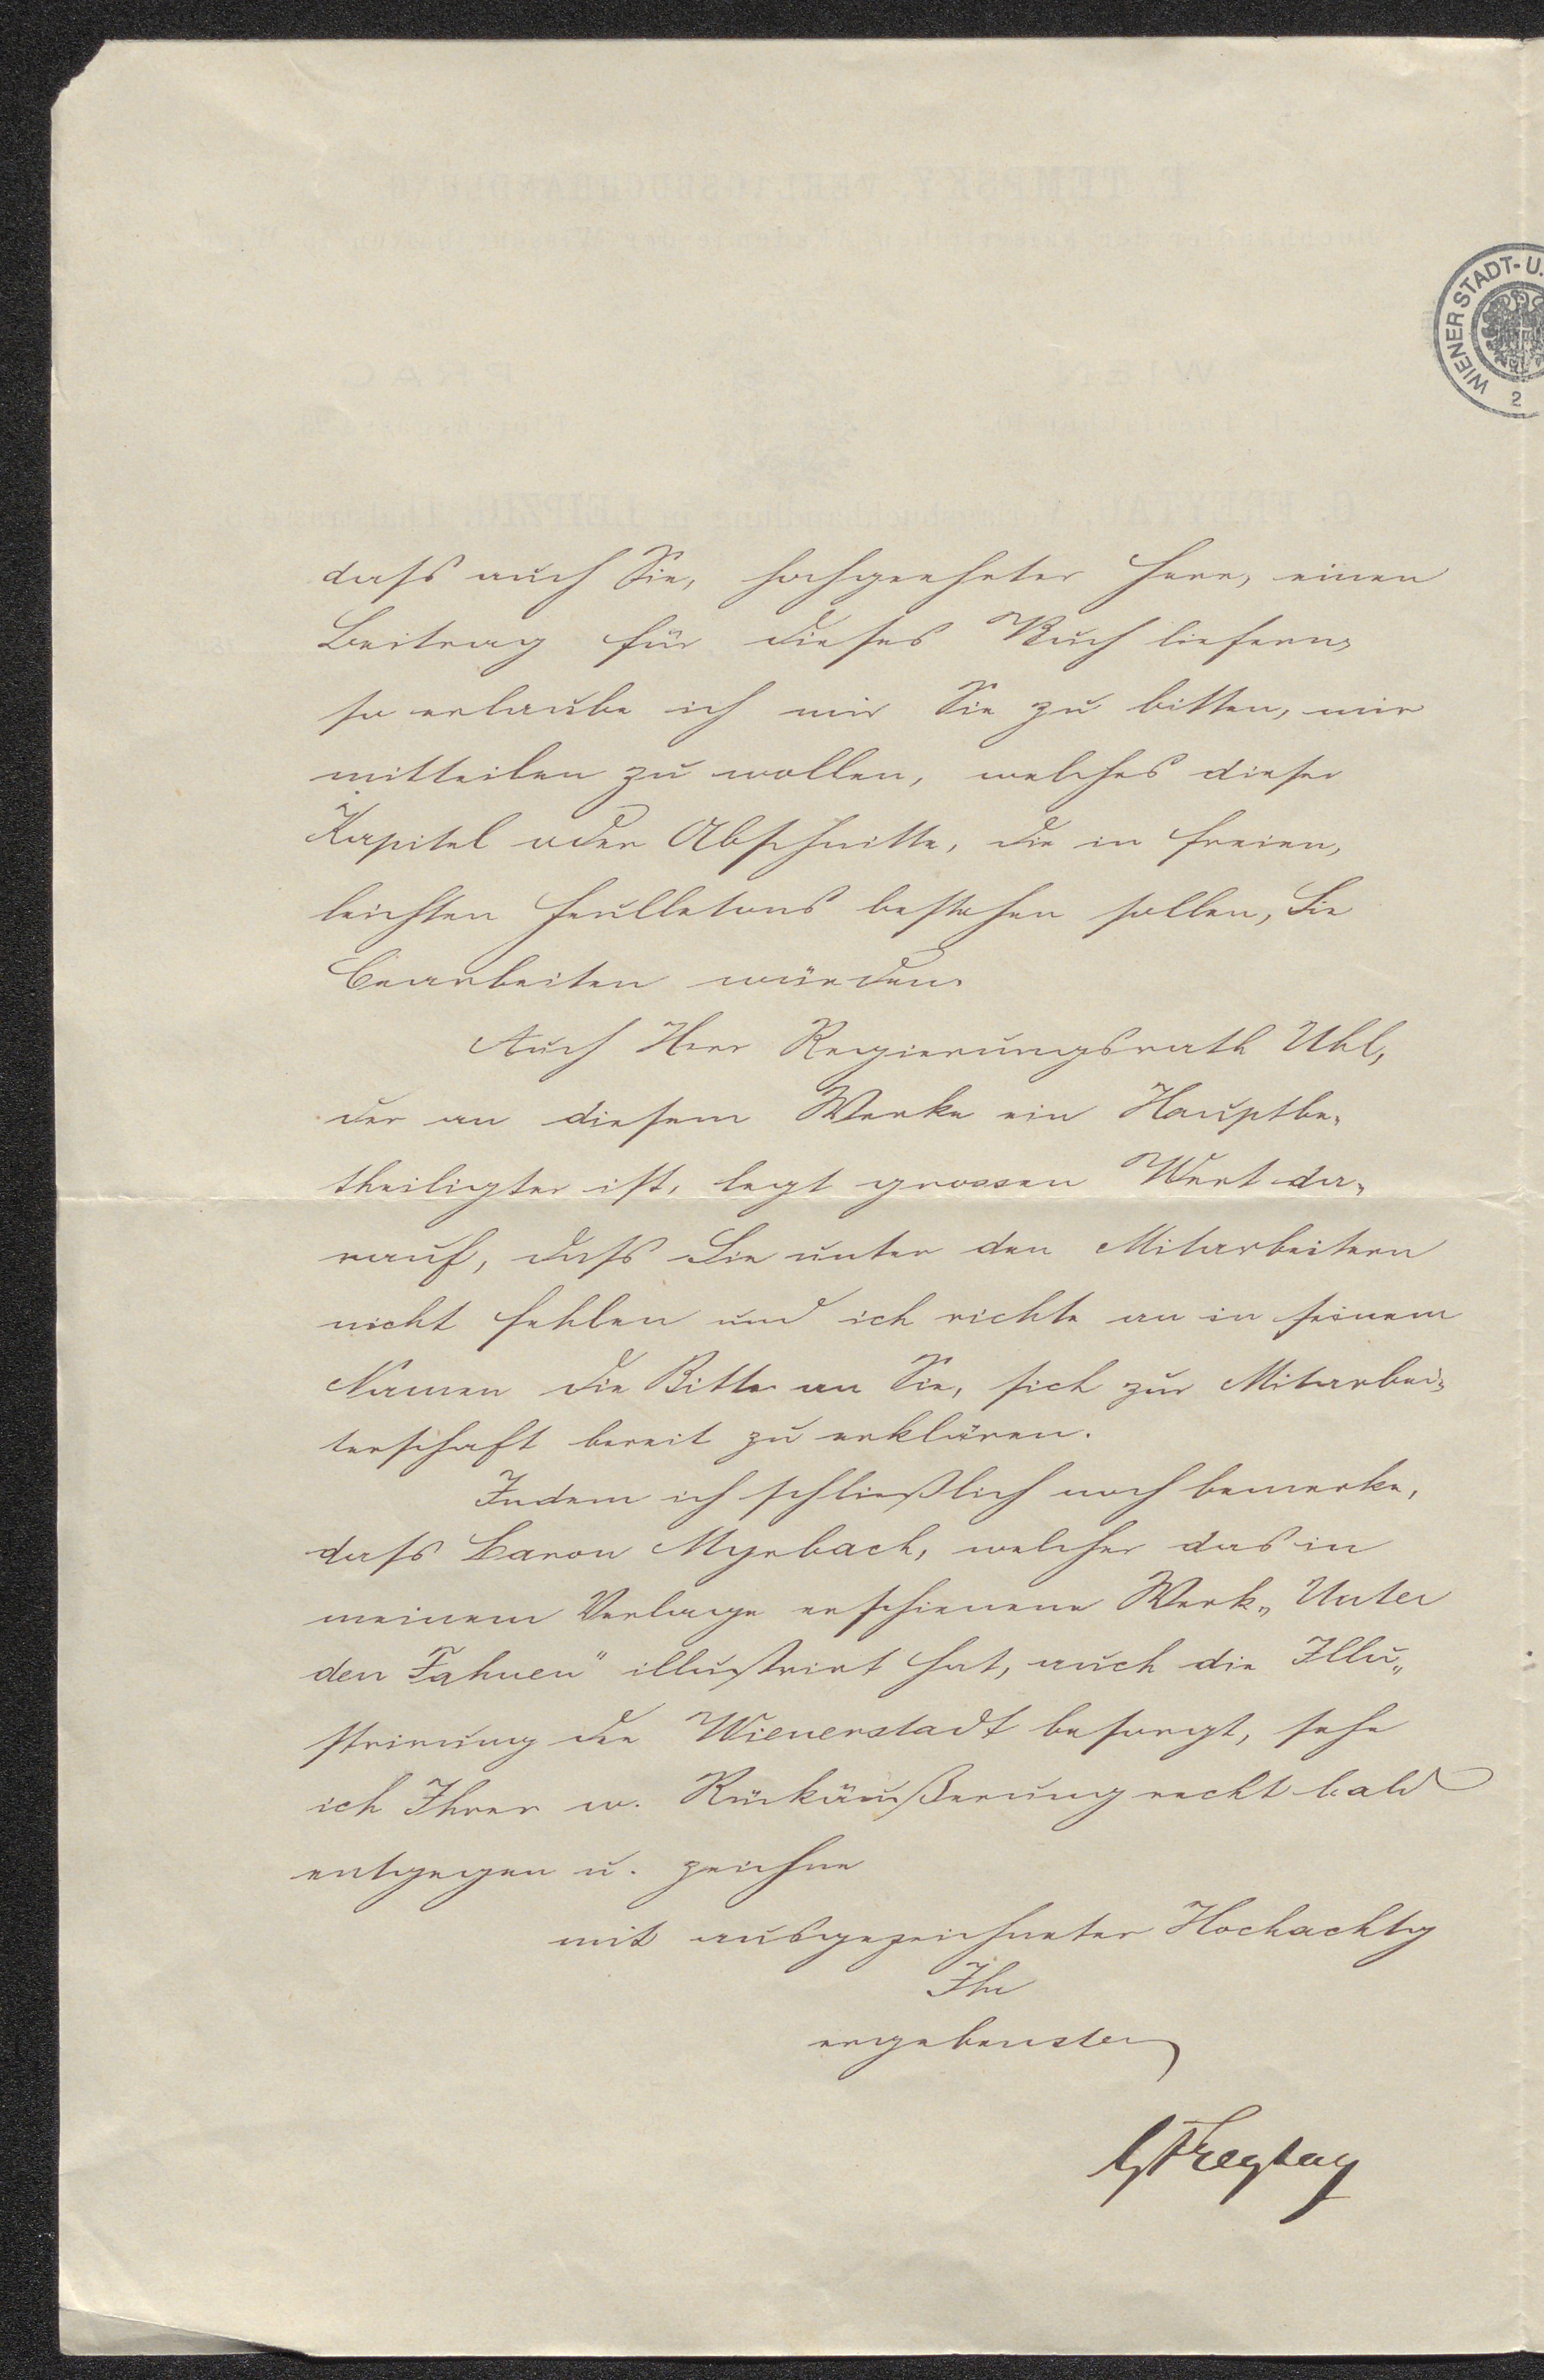 WIENER STADT-U.
2
dass auch Sie, hochgeehrter Herr, einen
Beitrag für dieses Buch liefern,
so erlaube ich mir Sie zu bitten, mir
mitteilen zu wollen, welches dieser
Kapitel oder Abschnitte, die in freien,
leichten Feulletons bestehen sollen, Sie
bearbeiten würden.
Auch Herr Regierungsrath Uhl,
der an diesem Werke ein Hauptbe„
theiligter ist, legt grossen Wert da„
rauf, dass Sie unter den Mitarbeitern
nicht fehlen und ich richte an in seinem
Namen die Bitte an Sie, sich zur Mitarbei„
terschaft bereit zu erklären.
Indem ich schließlich noch bemerke,
dass Baron Myrbach, welcher das in
meinem Verlage erschienene Werk „Unter
den Fahnen" illustrirt hat, auch die Illu„
strirung der Wienerstadt besorgt, sehe
ich Ihrer w. Rückäußerung recht bald
entgegen u. zeichne
mit ausgezeichneter Hochachtg
Ihr
ergebenster
GFreytag